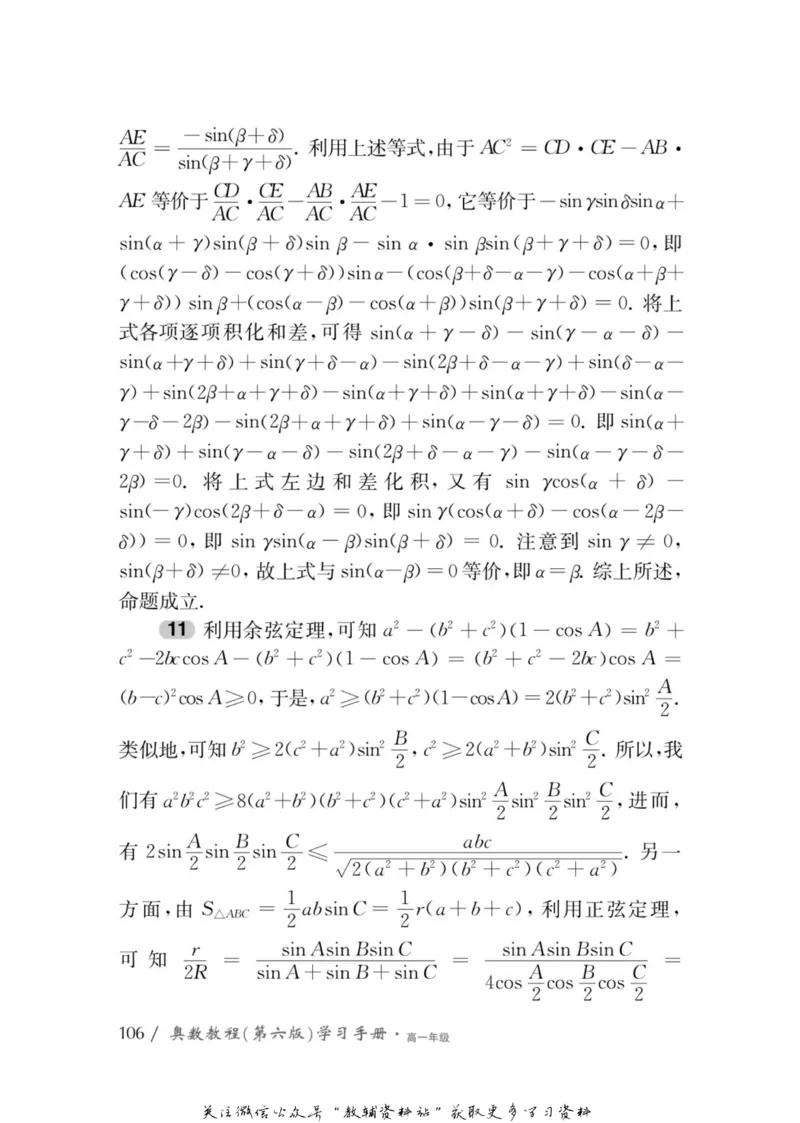 AE/AC = −sin(β+δ)/sin(β+γ+δ). 利用上述等式,由于 AC² = CD · CE − AB ·
AE 等价于 CD/AC · CE/AC − AB/AC · AE/AC − 1 = 0, 它等价于 − sin γsin δsin α+
sin(α + γ)sin(β + δ)sin β − sin α · sin βsin(β+γ+δ) = 0, 即
(cos(γ−δ)−cos(γ+δ))sinα−(cos(β+δ−α−γ)−cos(α+β+
γ+δ)) sin β+(cos(α−β)−cos(α+β))sin(β+γ+δ) = 0. 将上
式各项逐项积化和差,可得 sin(α + γ − δ) − sin(γ − α − δ) −
sin(α+γ+δ)+sin(γ+δ−α)−sin(2β+δ−α−γ)+sin(δ−α−
γ)+sin(2β+α+γ+δ)−sin(α+γ+δ)+sin(α+γ+δ)−sin(α−
γ−δ−2β)−sin(2β+α+γ+δ)+sin(α−γ−δ) = 0. 即 sin(α+
γ+δ)+sin(γ−α−δ)−sin(2β+δ−α−γ)−sin(α−γ−δ−
2β) =0. 将上式左边和差化积, 又有 sin γcos(α + δ) −
sin(−γ)cos(2β+δ−α) = 0, 即 sin γ(cos(α+δ)−cos(α−2β−
δ)) = 0, 即 sin γsin(α−β)sin(β+δ) = 0. 注意到 sin γ ≠ 0,
sin(β+δ) ≠0, 故上式与 sin(α−β) = 0 等价,即 α = β. 综上所述,
命题成立.
11 利用余弦定理,可知 a² − (b² + c²)(1 − cos A) = b² +
c² −2bccos A − (b² + c²)(1 − cos A) = (b² + c² − 2bc)cos A =
(b−c)²cos A≥0, 于是, a² ≥(b²+c²)(1−cosA) = 2(b²+c²)sin² A/2.
类似地,可知 b² ≥2(c²+a²)sin² B/2, c² ≥2(a²+b²)sin² C/2. 所以,我
们有 a²b²c² ≥8(a²+b²)(b²+c²)(c²+a²)sin² A/2 sin² B/2 sin² C/2, 进而,
有 2sin A/2 sin B/2 sin C/2 ≤ abc/√(2(a² + b²)(b² + c²)(c² + a²)). 另一
方面,由 S△ABC = 1/2 absin C = 1/2 r(a+b+c), 利用正弦定理,
可知 r/2R = sin Asin Bsin C/(sin A+sin B+sin C) = sin Asin Bsin C/(4cos A/2 cos B/2 cos C/2) =
106 / 奥数教程(第六版)学习手册 · 高一年级
关注微信公众号“教辅资料站”获取更多学习资料